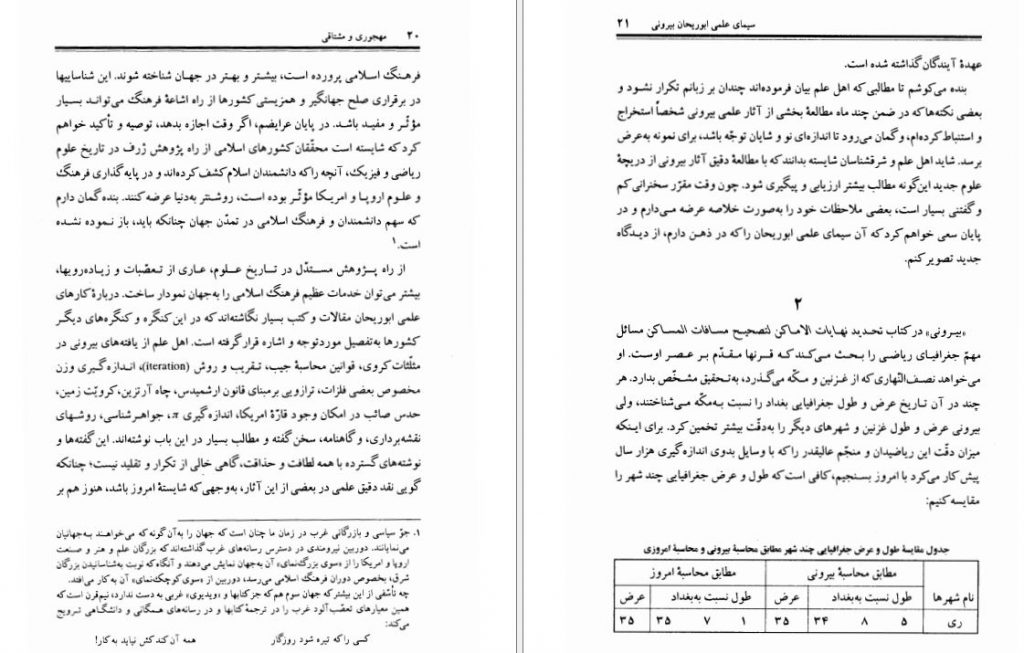 ۲۰ مهجوری و مشتاقی
فرهنگ اسلامی پرورده است، بیشتر و بهتر در جهان شناخته شوند. این شناساییها
در برقراری صلح جهانگیر و همزیستی کشورها از راه اشاعهٔ فرهنگ می‌تواند بسیار
مؤثّر و مفید باشد. در پایان عرایضم، اگر وقت اجازه بدهد، توصیه و تأکید خواهم
کرد که شایسته است محقّقان کشورهای اسلامی از راه پژوهش ژرف در تاریخ علوم
ریاضی و فیزیک، آنچه را که دانشمندان اسلام کشف کرده‌اند و در پایه‌گذاری فرهنگ
و علوم اروپا و امریکا مؤثّر بوده است، روشنتر به‌دنیا عرضه کنند. بنده گمان دارم
که سهم دانشمندان و فرهنگ اسلامی در تمدّن جهان چنانکه باید، باز نموده نشده
است.۱
از راه پژوهش مستدّل در تاریخ علوم، عاری از تعصّبات و زیاده‌رویها،
بیشتر می‌توان خدمات عظیم فرهنگ اسلامی را به‌جهان نمودار ساخت. دربارهٔ کارهای
علمی ابوریحان مقالات و کتب بسیار نگاشته‌اند که در این کنگره و کنگره‌های دیگر
کشورها به‌تفصیل موردتوجه و اشاره قرار گرفته است. اهل علم از یافته‌های بیرونی در
مثلّثات کروی، قوانین محاسبهٔ جیب، تقریب و روش (iteration)، اندازه‌گیری وزن
مخصوص بعضی فلزات، ترازویی برمبنای قانون ارشمیدس، چاه آرتزین، کرویّت زمین،
حدس صائب در امکان وجود قارّهٔ امریکا، اندازه‌گیری π، جواهرشناسی، روشهای
نقشه‌برداری، و گاهنامه، سخن گفته و مطالب بسیار در این باب نوشته‌اند. این گفته‌ها و
نوشته‌های گسترده با همه لطافت و حذاقت، گاهی خالی از تکرار و تقلید نیست؛ چنانکه
گویی نقد دقیق علمی در بعضی از این آثار، به‌وجهی که شایستهٔ امروز باشد، هنوز هم بر
۱. جوّ سیاسی و بازرگانی غرب در زمان ما چنان است که جهان را به‌آن گونه که می‌خواهند به‌جهانیان
می‌نمایانند. دوربین نیرومندی در دسترس رسانه‌های غرب گذاشته‌اند که بزرگان علم و هنر و صنعت
اروپا و امریکا را از «سوی بزرگ‌نمای» آن به‌جهان نمایش می‌دهند و آنگاه که نوبت به‌شناسانیدن بزرگان
شرق، بخصوص دوران فرهنگ اسلامی می‌رسد، دوربین از «سوی کوچک‌نمای» آن به کار می‌افتد.
چه تأسّفی از این بیشتر که جهان سوم هم که جز کتابها و «ویدیوی» غربی به دست ندارد، نیم‌قرن است که
همین معیارهای تعصّب‌آلود غرب را در ترجمهٔ کتابها و در رسانه‌های همگانی و دانشگاهی ترویج
می‌کند:
کسی را که تیره شود روزگار همه آن کند کش نیاید به‌کار!
سیمای علمی ابوریحان بیرونی ۲۱
عهدهٔ آیندگان گذاشته شده است.
بنده می‌کوشم تا مطالبی که اهل علم بیان فرموده‌اند چندان بر زبانم تکرار نشود و
بعضی نکته‌ها که در ضمن چند ماه مطالعهٔ بخشی از آثار علمی بیرونی شخصاً استخراج
و استنباط کرده‌ام، و گمان می‌رود تا اندازه‌ای نو و شایان توجّه باشد، برای نمونه به‌عرض
برسد. شاید اهل علم و شرقشناسان شایسته بدانند که با مطالعهٔ دقیق آثار بیرونی از دریچهٔ
علوم جدید این‌گونه مطالب بیشتر ارزیابی و پیگیری شود. چون وقت مقرّر سخنرانی کم
و گفتنی بسیار است، بعضی ملاحظات خود را به‌صورت خلاصه عرضه می‌دارم و در
پایان سعی خواهم کرد که آن سیمای علمی ابوریحان را که در ذهن دارم، از دیدگاه
جدید تصویر کنم.
۲
«بیرونی» در کتاب تحدید نهایات الاماکن لتصحیح مسافات المساکن مسائل
مهمّ جغرافیای ریاضی را بحث می‌کند که قرنها مقدّم بر عصر اوست. او
می‌خواهد نصف‌النّهاری که از غزنین و مکّه می‌گذرد، به‌تحقیق مشخّص بدارد. هر
چند در آن تاریخ عرض و طول جغرافیایی بغداد را نسبت به‌مکّه می‌شناختند، ولی
بیرونی عرض و طول غزنین و شهرهای دیگر را به‌دقّت بیشتر تخمین کرد. برای اینکه
میزان دقّت این ریاضیدان و منجّم عالیقدر را که با وسایل بدوی اندازه‌گیری هزار سال
پیش کار می‌کرد با امروز بسنجیم، کافی است که طول و عرض جغرافیایی چند شهر را
مقایسه کنیم:
جدول مقایسهٔ طول و عرض جغرافیایی چند شهر مطابق محاسبهٔ بیرونی و محاسبهٔ امروزی
نام شهرها مطابق محاسبهٔ بیرونی مطابق محاسبهٔ امروز
طول نسبت به‌بغداد عرض طول نسبت به‌بغداد عرض
ری ۵ ۸ ۳۴ ۳۵ ۱ ۷ ۳۵ ۳۵